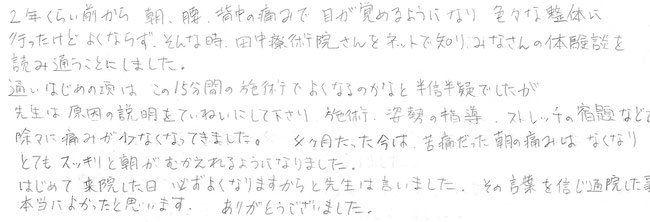 2年くらい前から 朝、腰、背中の痛みで目が覚めるようになり 色々な整体に
行ったけど よくならず、そんな時、田中療術院さんをネットで知り、みなさんの体験談を
読み通うことにしました。
通いはじめの頃は この15分間の施術でよくなるのかなと半信半疑でしたが
先生は原因の説明をていねいにして下さり 施術、姿勢の指導、ストレッチの宿題などで
除々に痛みが少なくなってきました。 4ヶ月たった今は、苦痛だった朝の痛みは なくなり
とても スッキリと朝が むかえれるようになりました。
はじめて来院した日 必ずよくなりますからと先生は言いました。 その言葉を信じ通院した事
本当によかったと思います。 ありがとうございました。